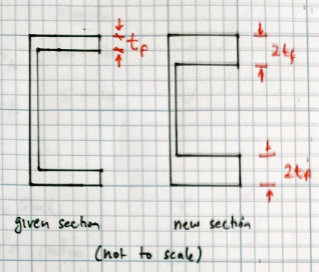 tf
2tf
2tf
given section
new section
(not to scale)